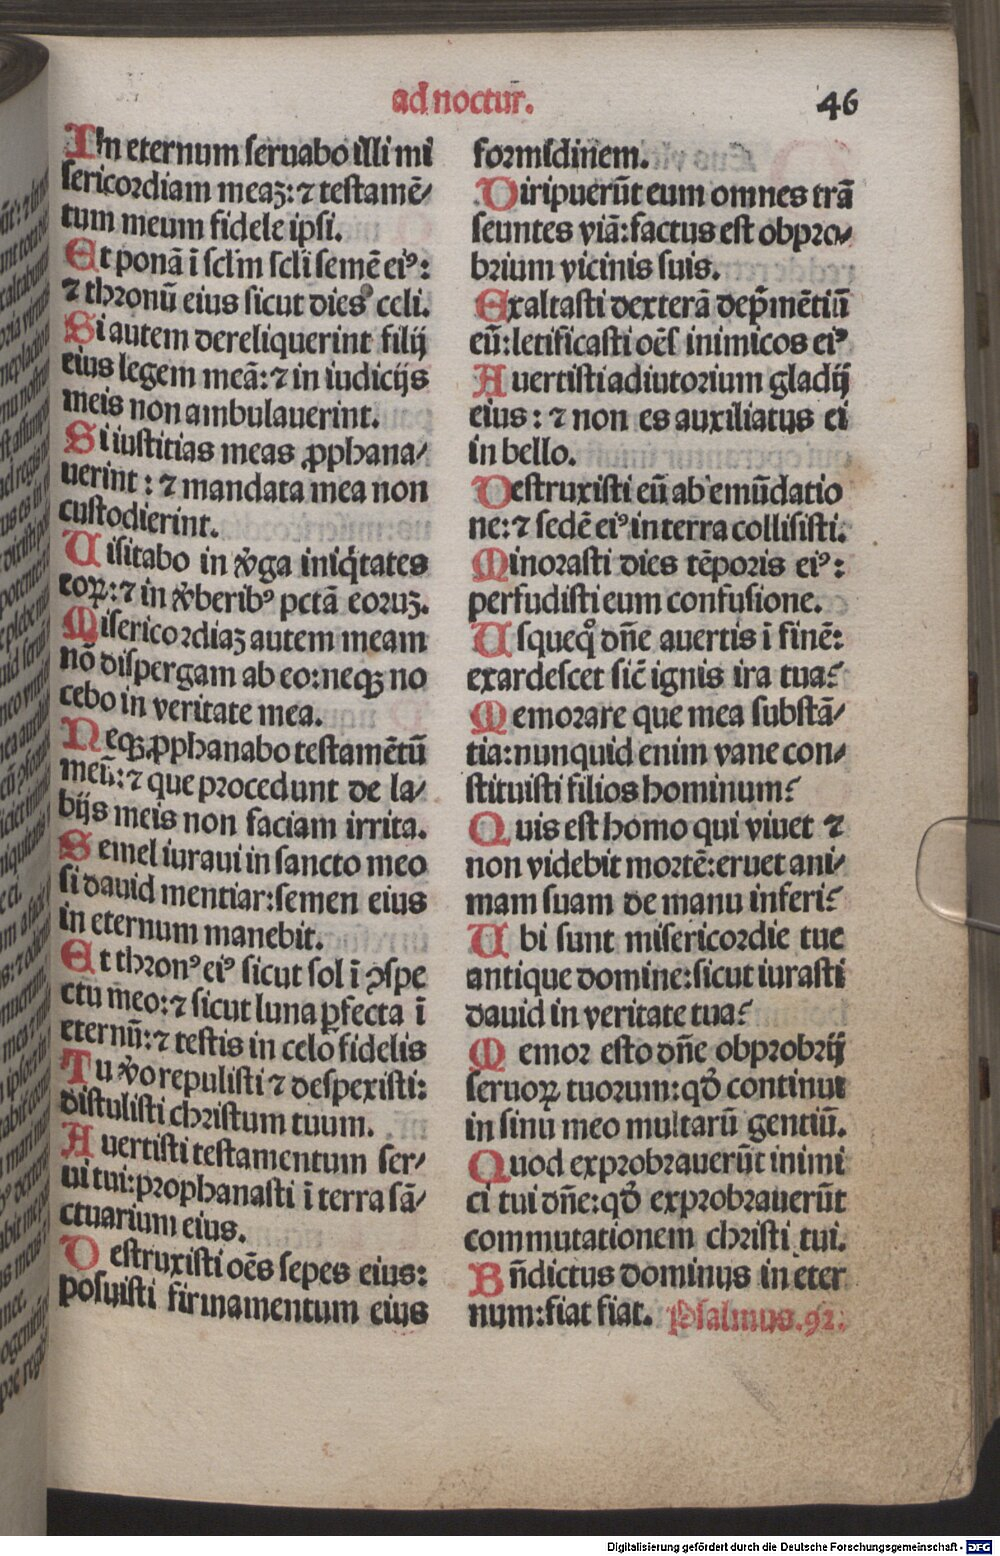 ad noctur̄.
46
In eternum seruabo illi mi
sericordiam meaꝫ: ⁊ testamē/
tum meum fidele ipsi.
Et ponā ī scl̄m scl̄i semē eiꝰ:
⁊ thronū eius sicut dies celi.
Si autem dereliquerint filij
eius legem meā: ⁊ in iudicijs
meis non ambulauerint.
Si iustitias meas ꝓphana/
uerint: ⁊ mandata mea non
custodierint.
Uisitabo in v̓ga iniq̄tates
eoꝝ: ⁊ in v̓beribꝰ pctā eoruꝫ.
Misericordiaꝫ autem meam
nō dispergam ab eo: neqꝫ no
cebo in veritate mea.
Neqꝫ ꝓphanabo testamētū
meū: ⁊ que procedunt de la/
bijs meis non faciam irrita.
Semel iuraui in sancto meo
si dauid mentiar: semen eius
in eternum manebit.
Et thronꝰ eiꝰ sicut sol ī ꝯspe
ctu meo: ⁊ sicut luna ꝑfecta ī
eternū: ⁊ testis in celo fidelis
Tu v̓o repulisti ⁊ despexisti:
distulisti christum tuum.
Auertisti testamentum ser/
ui tui: prophanasti ī terra sā/
ctuarium eius.
Destruxisti oēs sepes eius:
posuisti firmamentum eius
formidinem.
Diripuerūt eum omnes trā
seuntes viā: factus est obpro/
brium vicinis suis.
Exaltasti dexterā dep̄mētiū
eū: letificasti oēs inimicos eiꝰ
Auertisti adiutorium gladij
eius: ⁊ non es auxiliatus ei
in bello.
Destruxisti eū ab emūdatio
ne: ⁊ sedē eiꝰ in terra collisisti.
Minorasti dies tēporis eiꝰ:
perfudisti eum confusione.
Usquequo dn̄e auertis ī finē:
exardescet sic̄ ignis ira tua?
Memorare que mea substā/
tia: nunquid enim vane con/
stituisti filios hominum?
Quis est homo qui viuet ⁊
non videbit mortē: eruet ani/
mam suam de manu inferi?
Ubi sunt misericordie tue
antique domine: sicut iurasti
dauid in veritate tua?
Memor esto dn̄e obprobrij
seruoꝝ tuorum: qd̄ continui
in sinu meo multarū gentiū.
Quod exprobrauerūt inimi
ci tui dn̄e: qd̄ exprobrauerūt
commutationem christi tui.
Bn̄dictus dominus in eter
num: fiat fiat. Psalmus. 92.
Digitalisierung gefördert durch die Deutsche Forschungsgemeinschaft - DFG